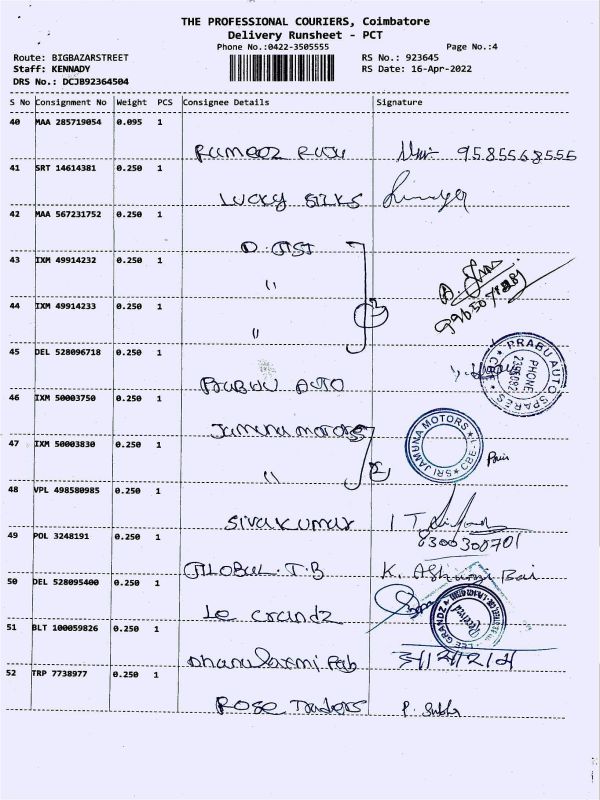 THE PROFESSIONAL COURIERS, Coimbatore
Delivery Runsheet - PCT
Phone No.:0422-3505555
Page No.:4
Route: BIGBAZARSTREET
RS No.: 923645
Staff: KENNADY
RS Date: 16-Apr-2022
DRS No.: DCJB92364504
S No Consignment No Weight PCS Consignee Details Signature
40 MAA 285719054 0.095 1
9585568555
41 SRT 14614381 0.250 1
Lucky SILKS
42 MAA 567231752 0.250 1
43 IXM 49914232 0.250 1
"
44 IXM 49914233 0.250 1
"
45 DEL 528096718 0.250 1
PRABU AUTO SPARES CBE PHONE
46 IXM 50003750 0.250 1
Jamuna motors
SRI JAMUNA MOTORS CBE-1
47 IXM 50003830 0.250 1
"
48 VPL 498580985 0.250 1
Sivakumar
8300300701
49 POL 3248191 0.250 1
GLOBUL. T.B
50 DEL 528095400 0.250 1
Le Grandz
LEE GRANDZ
51 BLT 100059826 0.250 1
Dhanulaxmi Fab
52 TRP 7738977 0.250 1
Rose Traders P. Subha